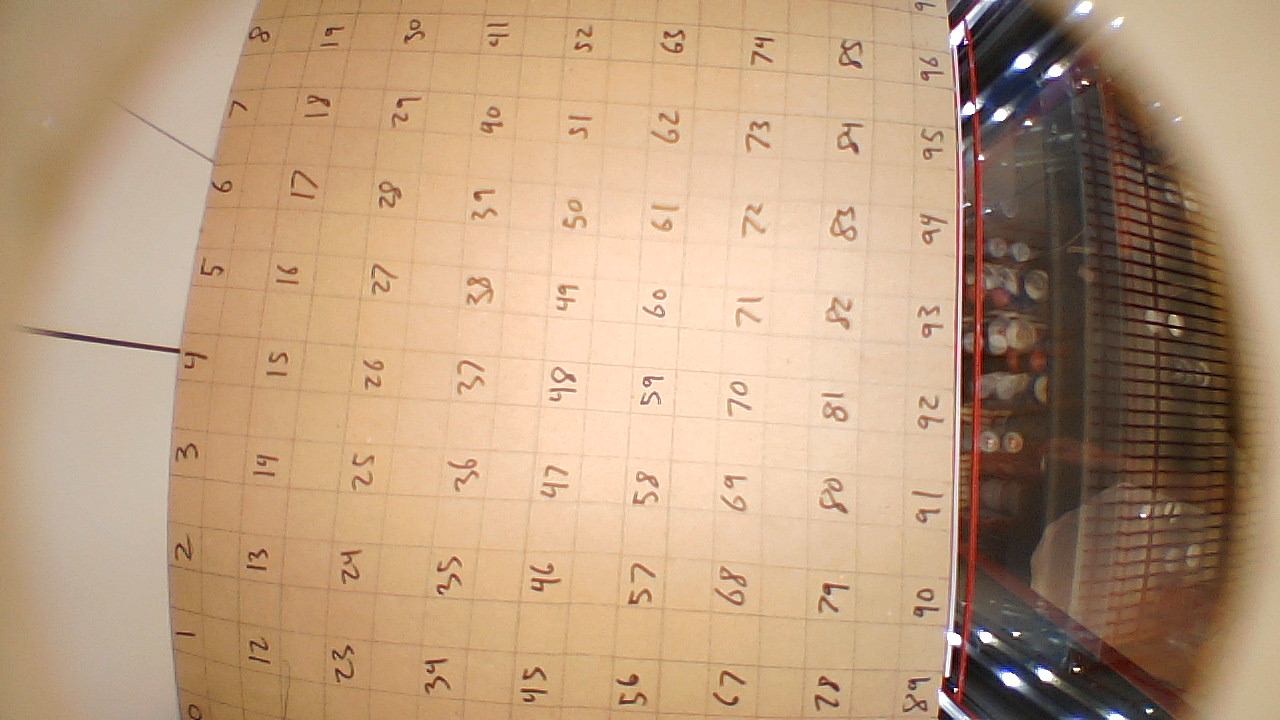 0 1 2 3 4 5 6 7 8
12 13 14 15 16 17 18 19
23 24 25 26 27 28 29 30
34 35 36 37 38 39 40 41
45 46 47 48 49 50 51 52
56 57 58 59 60 61 62 63
67 68 69 70 71 72 73 74
78 79 80 81 82 83 84 85
89 90 91 92 93 94 95 96